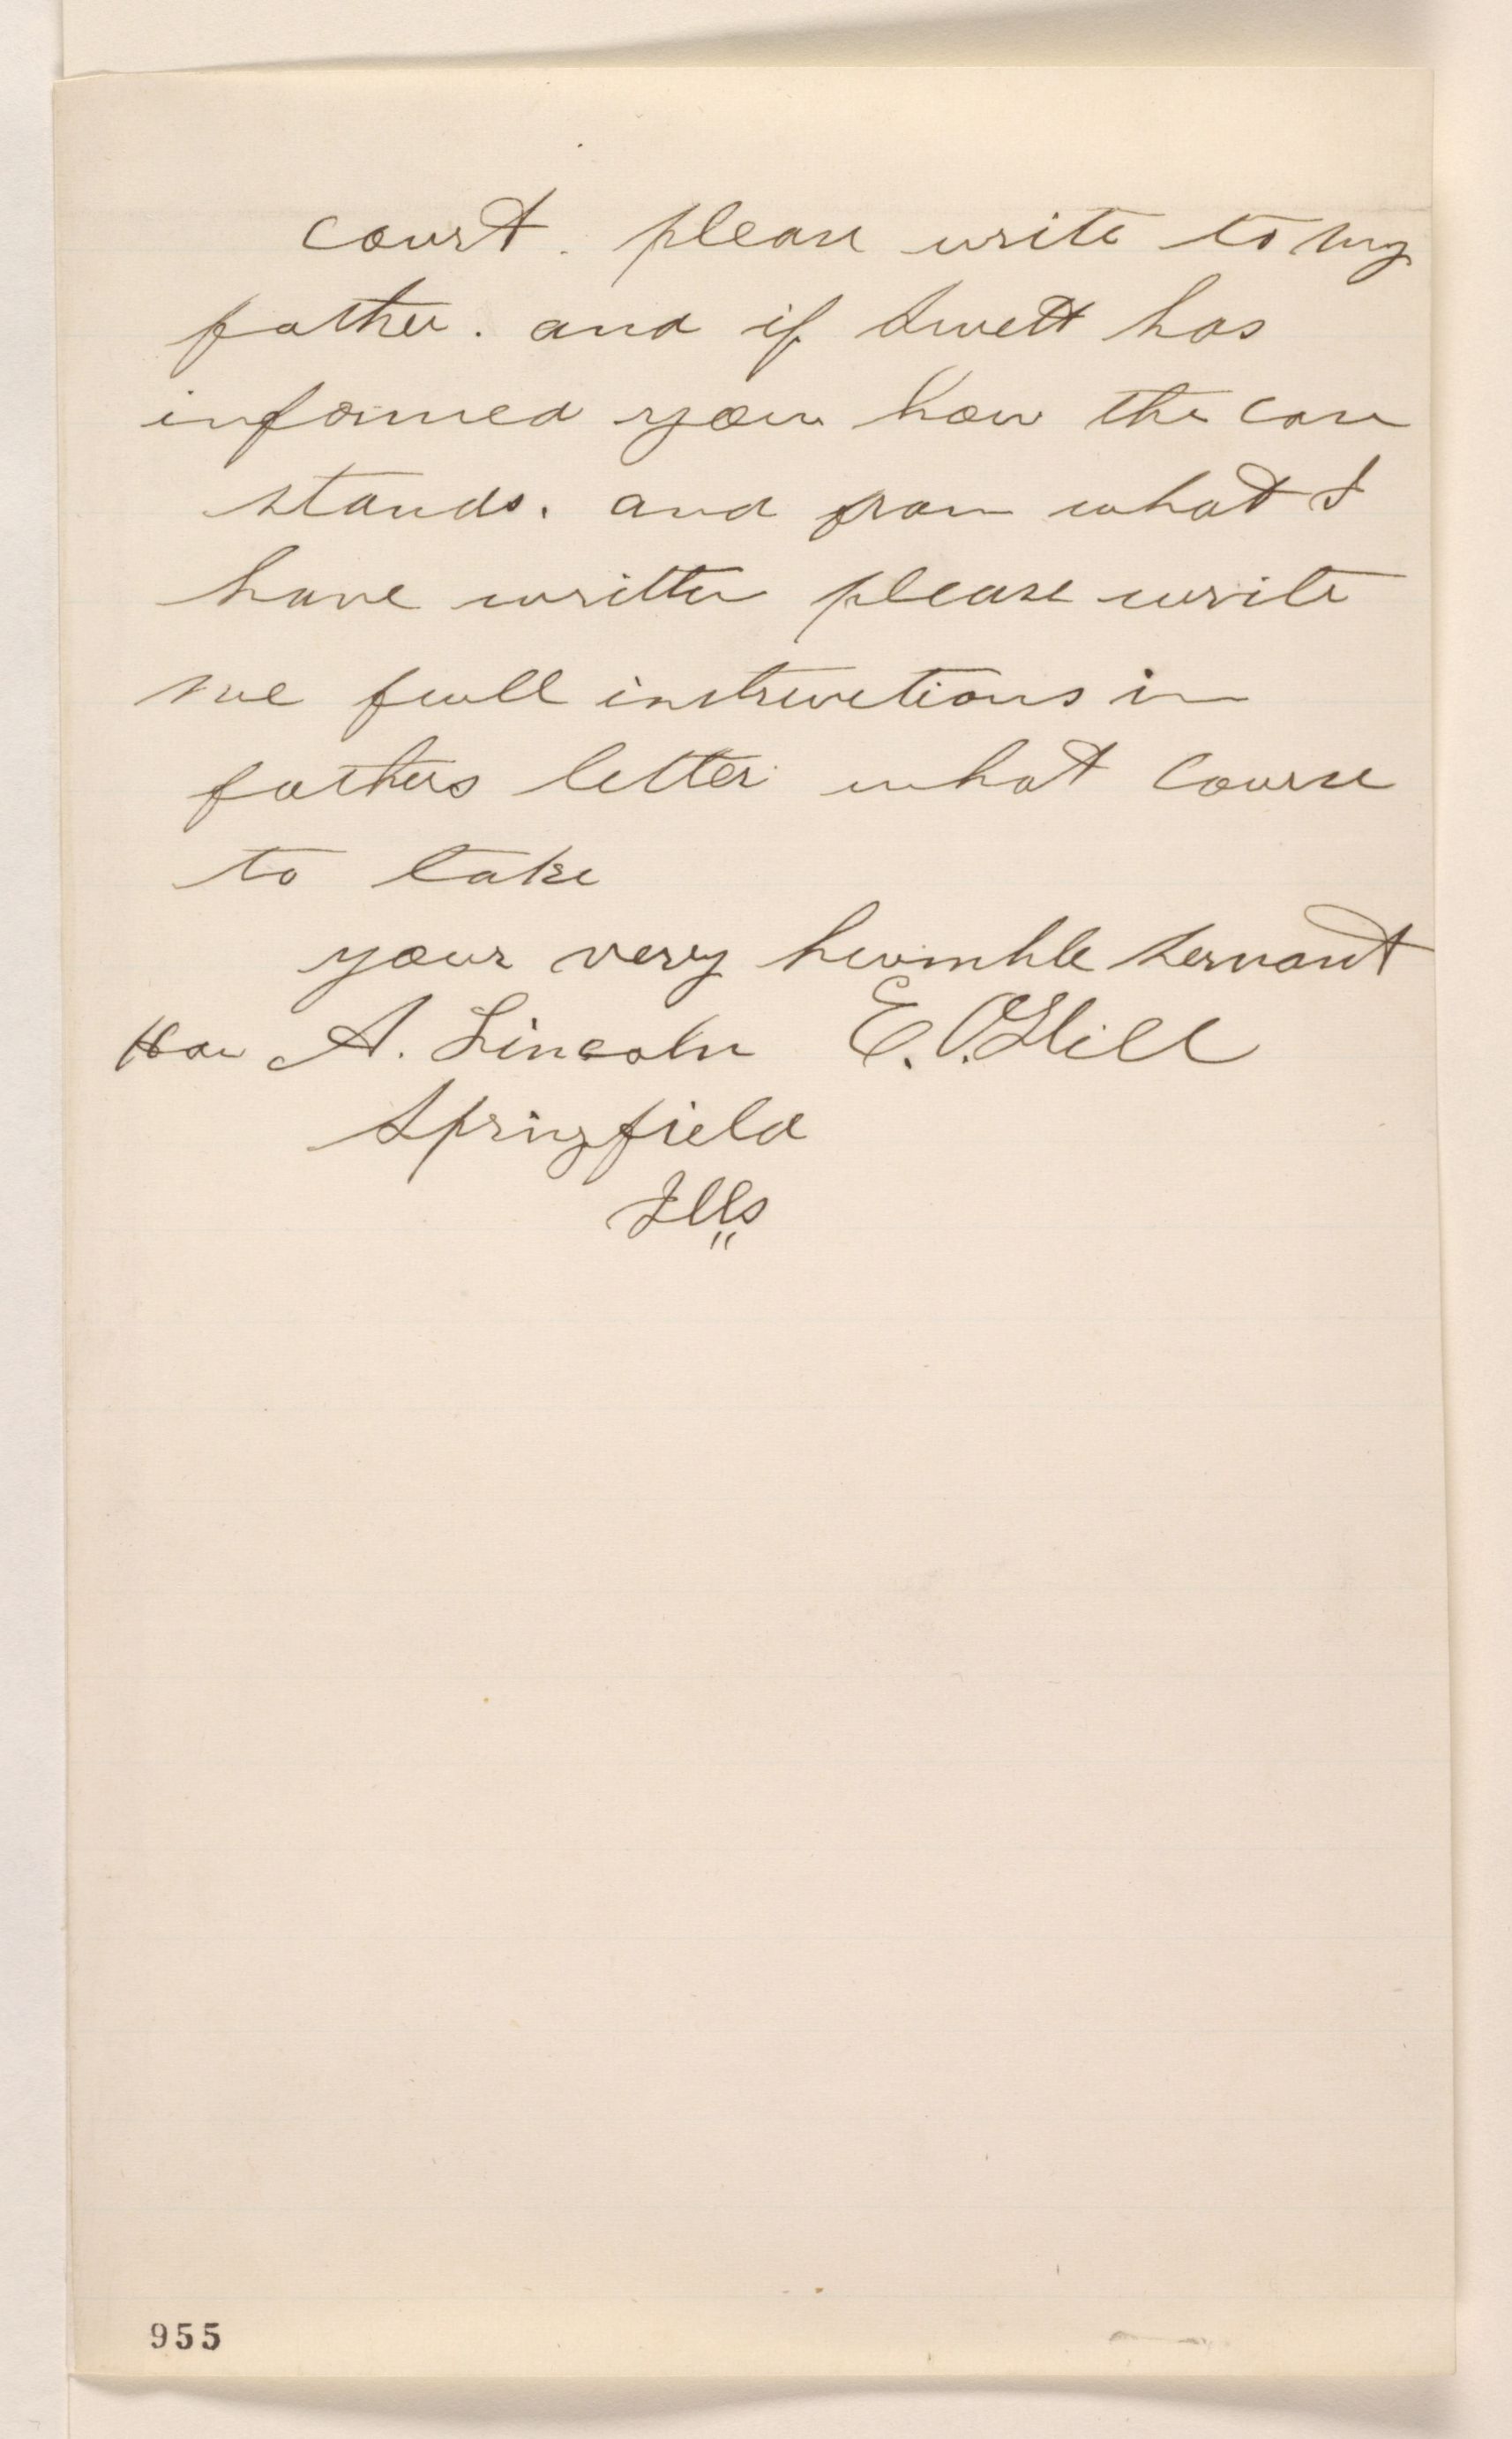 court. please write to my
father. and if Swett has
informed you how the case
stands. and from what I
have written please write
me full instructions in
fathers letter what course
to take
your very humble servant
Hon A. Lincoln E. O. Hill
Springfield
Ills
955